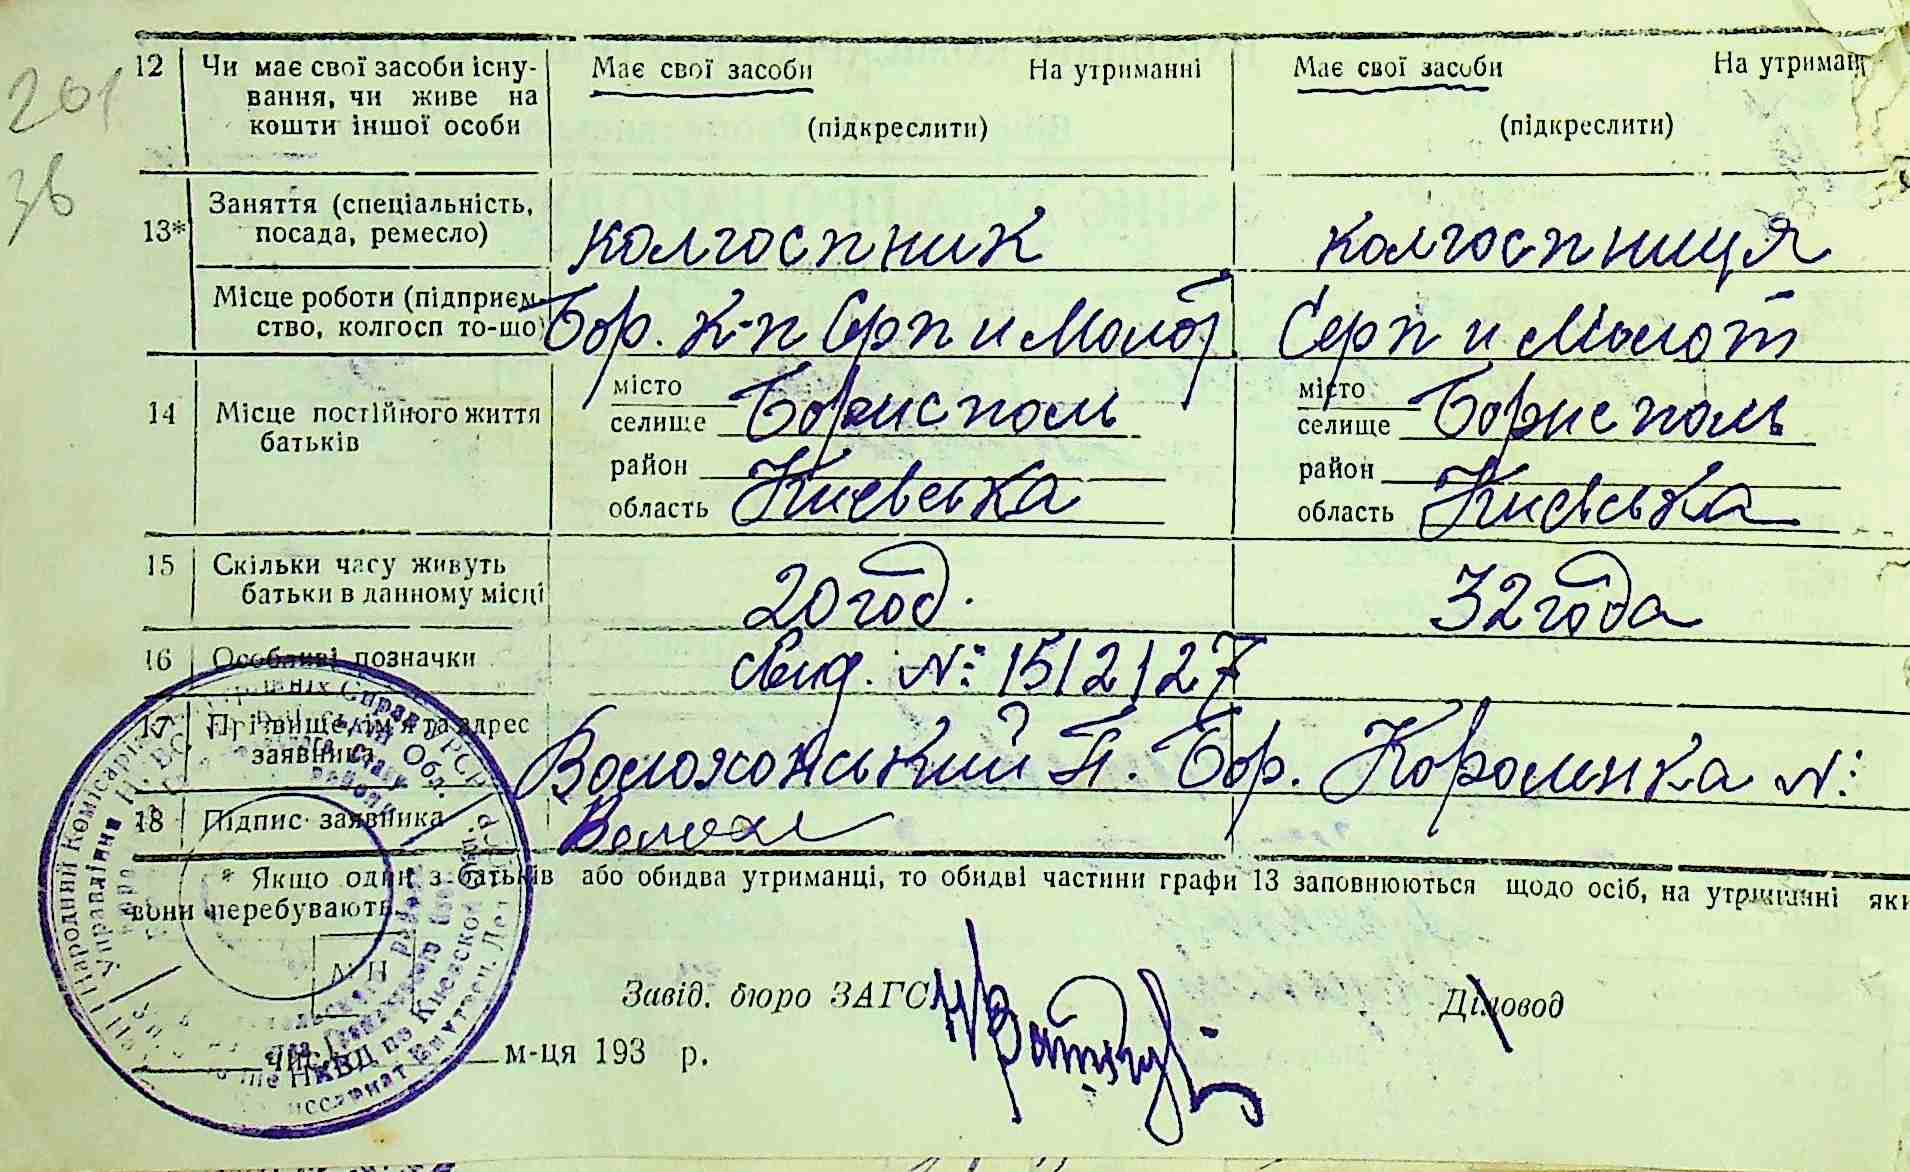 201
36
12 Чи має свої засоби існу- Має свої засоби На утриманні Має свої засоби На утриман
вання, чи живе на
кошти іншої особи (підкреслити) (підкреслити)
13* Заняття (спеціальність,
посада, ремесло) колгоспник колгоспниця
Місце роботи (підприєм-
ство, колгосп то-що) Бор. к-п Серп и Молот Серп и Молот
14 Місце постійного життя
батьків
місто місто
селище Борисполь селище Борисполь
район район
область Киевська область Киевська
15 Скільки часу живуть
батьки в данному місці 20 год. 32 года
16 Особливі позначки Свид. №: 1512127
17 Прізвище ім'я та адрес
заявника Волохонський П. Бор. Короленка №:
18 Підпис заявника Волохон
* Якщо один з батьків або обидва утриманці, то обидві частини графи 13 заповнюються щодо осіб, на утриманні яки
вони перебувають.
М П
Завід. бюро ЗАГС Діловод
м-ця 193 р.